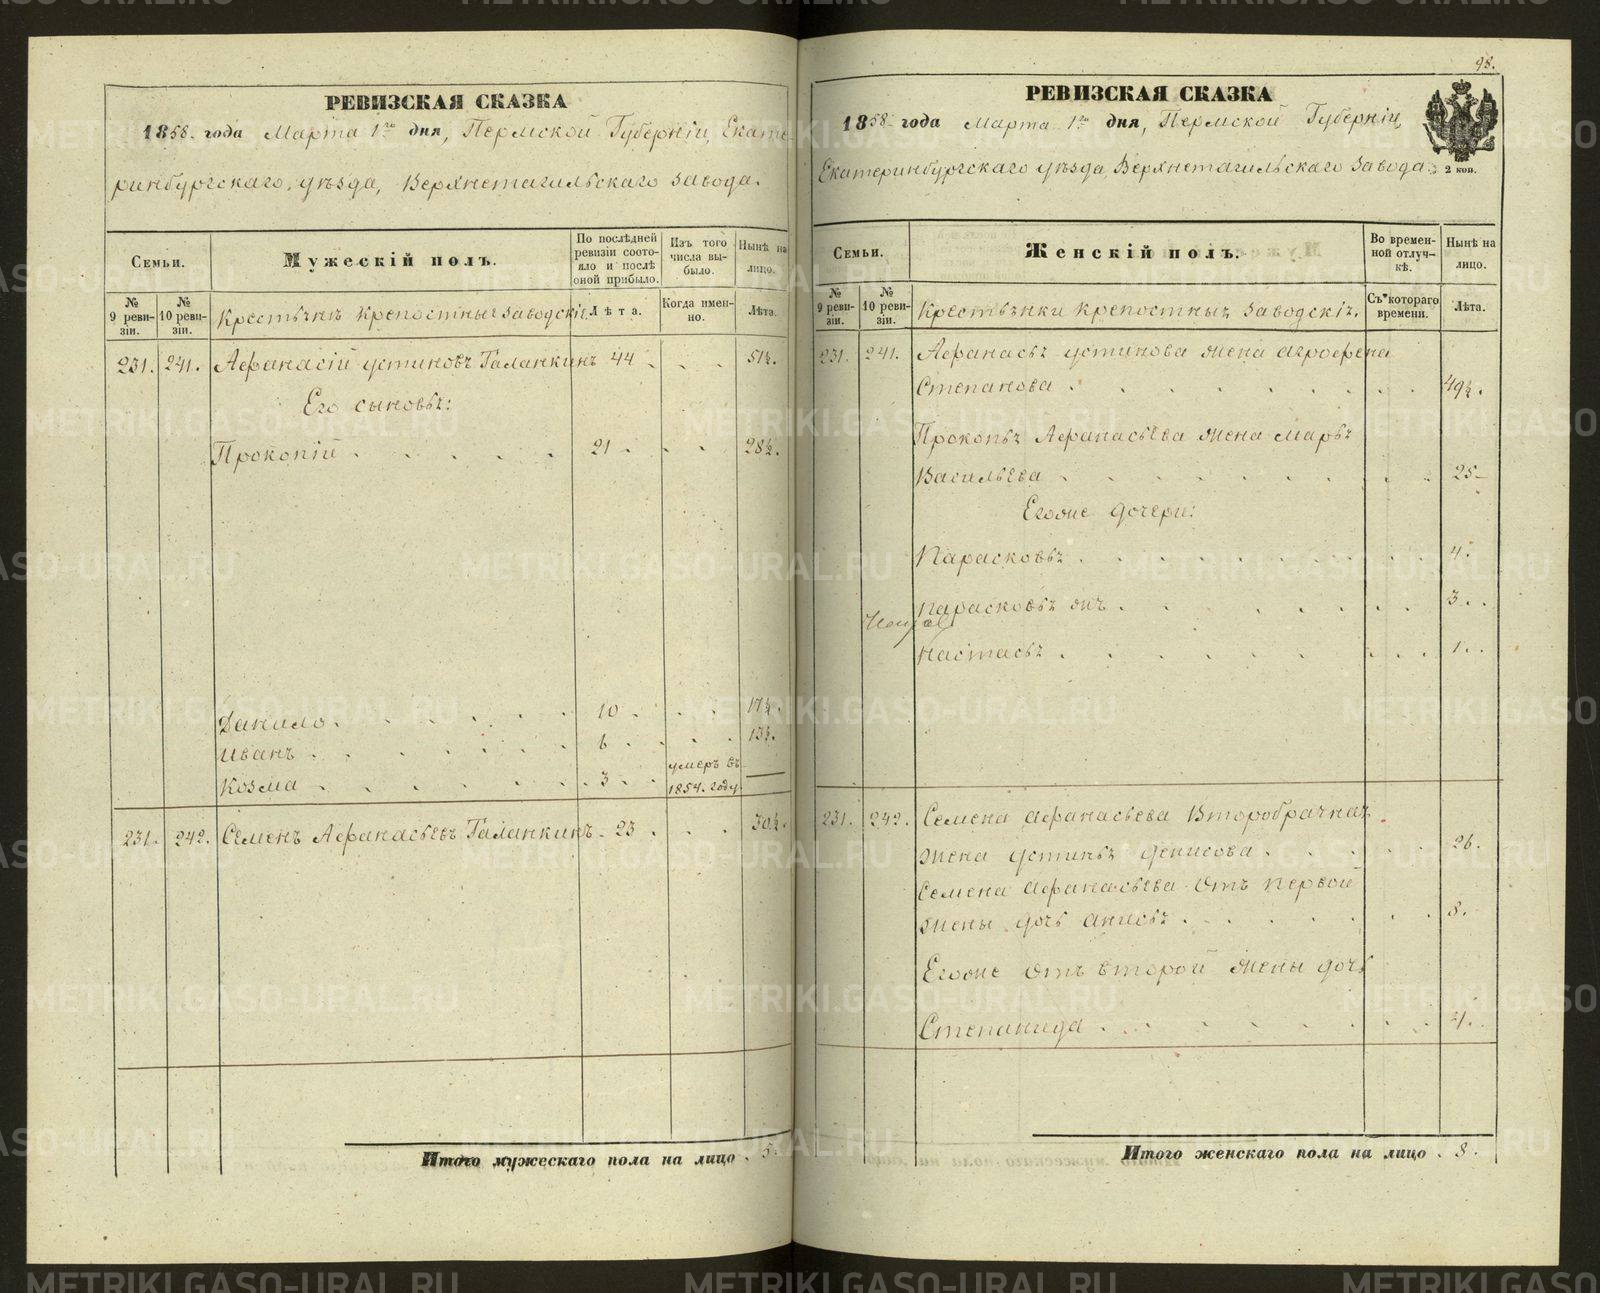 РЕВИЗСКАЯ СКАЗКА
1858 года Марта 1го дня, Пермской Губерніи, Екате-
ринбургскаго уѣзда, Верхнетагильскаго завода.
Семьи.
Мужескій полъ.
По послѣдней ревизіи состояло и послѣ оной прибыло.
Изъ того числа выбыло.
Нынѣ на лицо.
№ 9 ревизіи.
№ 10 ревизіи.
Крестьяне крепостные заводскіе
Лѣта.
Когда именно.
Лѣта.
231. 241. Афанасій Устиновъ Галанкинъ 44 . . . 51½.
Его сыновья:
Прокопій . . . . . 21 . . . 28½.
Данило . . . . . 10 . . . 17½.
Иванъ . . . . . 6 . . . 13½.
Козма . . . . . 3 . . умеръ въ 1854 году —
231. 242. Семенъ Афанасьевъ Галанкинъ 23 . . . 30½.
Итого мужескаго пола на лицо . 5.
98.
РЕВИЗСКАЯ СКАЗКА
1858 года Марта 1го дня, Пермской Губерніи,
Екатеринбургскаго уѣзда Верхнетагильскаго Завода.
2 коп.
Семьи.
Женскій полъ.
Во временной отлучкѣ.
Нынѣ на лицо.
№ 9 ревизіи.
№ 10 ревизіи.
Крестьянки крепостныя заводскія.
Съ котораго времени.
Лѣта.
231. 241. Афанасья Устинова жена Агрофена
Степанова . . . . . 49½.
Прокопья Афанасьева жена Марья
Васильева . . . . . 25
Егоже дочери:
Парасковья . . . . . 4.
Парасковья жъ . . . . . 3.
Настасья . . . . . 1.
231. 242. Семена Афанасьева второбрачная
жена Устинья Денисова . . . . . 26.
Семена Афанасьева отъ первой
жены дочь Анисья . . . . . 8.
Егоже отъ второй жены дочь
Степанида . . . . . 4.
Итого женскаго пола на лицо . 8.
METRIKI.GASO-URAL.RU